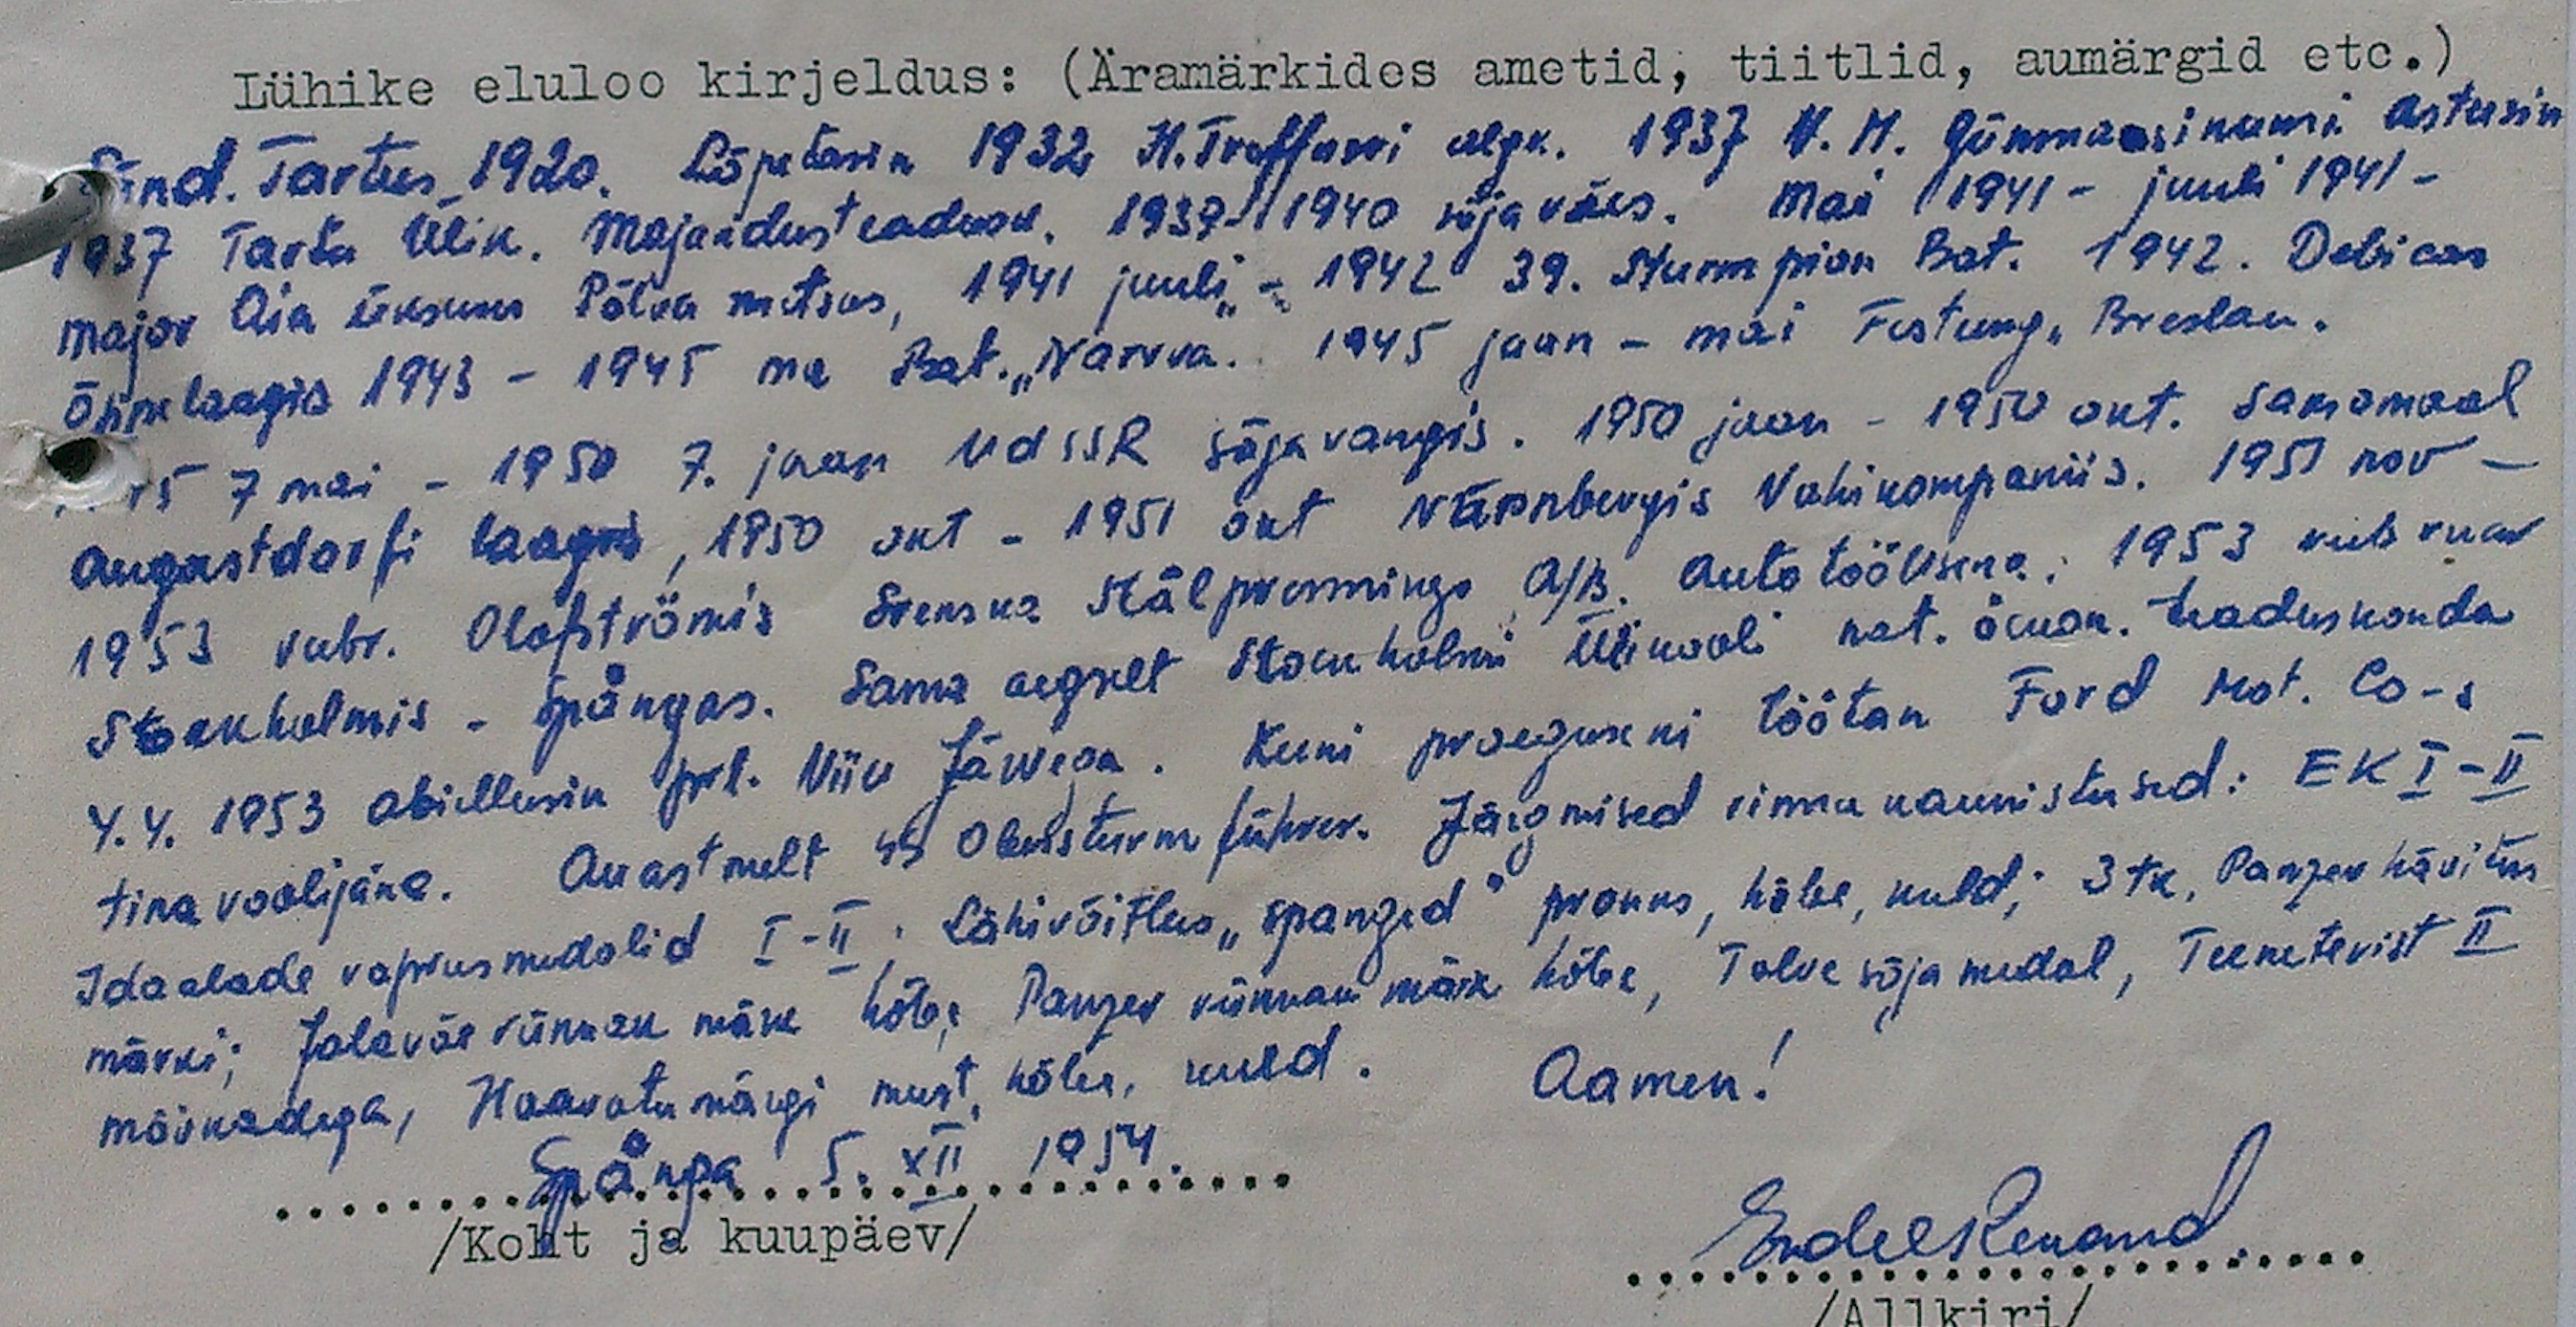 Lühike eluloo kirjeldus: (Äramärkides ametid, tiitlid, aumärgid etc.)
Sünd. Tartus 1920. Lõpetasin 1932 H. Treffneri algk. 1937 H. Gümnaasiumi astusin
1937 Tartu Ülik. Majandusteadusk. 1939-1940 sõjaväes. Mai 1941 - juuli 1941 -
major üksuses Põlva metsas, 1941 juuli - 1942 39. Sturm pion Bat. 1942. Debicas
Õppelaagris 1943 - 1945 ma Bat. „Narwa. 1945 jaan - mai Festung „ Breslau.
7 mai - 1950 7. jaan UdSSR sõjavangis. 1950 jaan - 1950 okt. Saksamaal
Augustdorfi laagris, 1950 okt - 1951 okt Nürnbergis Vahikompaniis. 1951 nov -
1953 veebr. Olofströmis Svenska Stålpressnings A/B. Autotöölisena. 1953 veebruar
Stockholmis - Spångas. Sama aegselt Stockholmi Ülikooli nat. ökon. teaduskonda
4.4. 1953 abiellusin prl. Viiu Kuni praeguseni töötan Ford Mot. Co-s
tinavoolijana. Auastmelt SS Obersturmführer. Järgmised rinnakaunistused: EK I-II
Idaalade vaprusmedalid I-II. Lähivõitlus „spanged" pronks, hõbe, kuld; 3 tk, Panzer hävitus
märki; Jalaväe rünnak märk hõbe, Panzer rünnak märk hõbe, Talvesõja medal, Teeneterist II
mõõkadega, Haavatumärgi must, hõbe, kuld. Aamen!
Spånga 5. XII 1954.
/Koht ja kuupäev/
Endel Renand
/Allkiri/